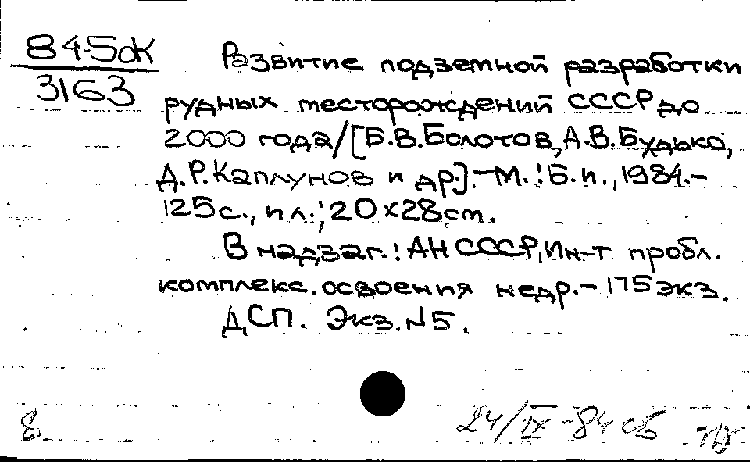 84-5дК
3163
Развитие подземной разработки
рудных месторождений СССР до
2000 года/[Б.В.Болотов, А.В.Будько,
Д.Р.Каплунов и др.].-М.:Б.и., 1984.-
125с., ил.; 20×28см.
В надзаг.: АН СССР, Ин-т пробл.
комплекс. освоения недр.-175экз.
ДСП. Экз. N5.
8.
24/IX-84 сб